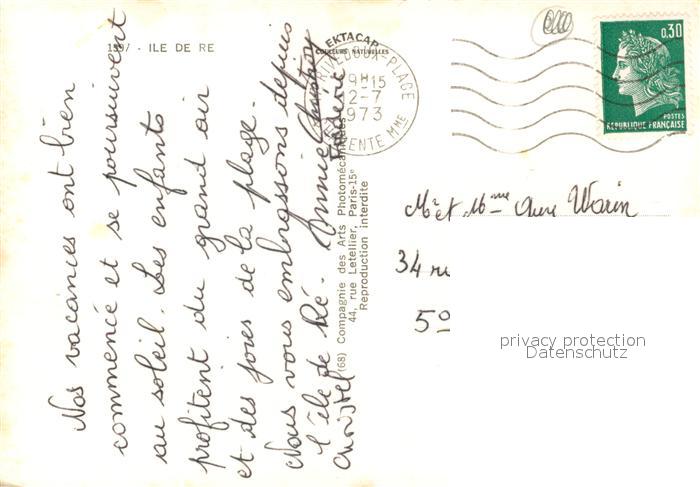 1397 - ILE DE RE
Nos vacances ont bien
commencé et se poursuivent
au soleil. Les enfants
profitent du grand air
et des joies de la plage.
Nous vous embrassons depuis
l'île de Ré. Annie
Christel
EKTACAP
COULEURS NATURELLES
(68) Compagnie des Arts Photomécaniques
44, rue Letellier, Paris-15e
Reproduction interdite
RIVEDOUX-PLAGE
9H15
2-7
1973
CHARENTE MME
0,30
POSTES
REPUBLIQUE FRANÇAISE
Mr et Mme Warin
34 ru
50
privacy protection
Datenschutz